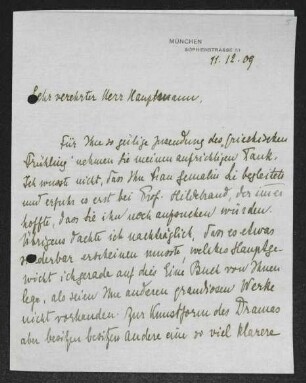 MÜNCHEN
SOPHIENSTRASSE
11.12.09
Sehr verehrter Herr Hauptmann,
Für Ihre so gütige Zusendung des "Griechischen
Frühling" nehmen Sie meinen aufrichtigen Dank.
Ich wusste nicht, dass Ihre Frau Gemahlin Sie begleitete
und erfuhr es erst bei Prof. Hildebrand, der immer
hoffte, dass Sie ihn noch aufsuchen würden.
Übrigens dachte ich nachträglich, dass es etwas
sonderbar erscheinen musste, welches Hauptge-
wicht ich gerade auf dies Eine Buch von Ihnen
lege, als seien Ihre anderen grandiosen Werke
nicht vorhanden. Zur Kunstform des Dramas
aber besitzen besitzen andere eine so viel klarere